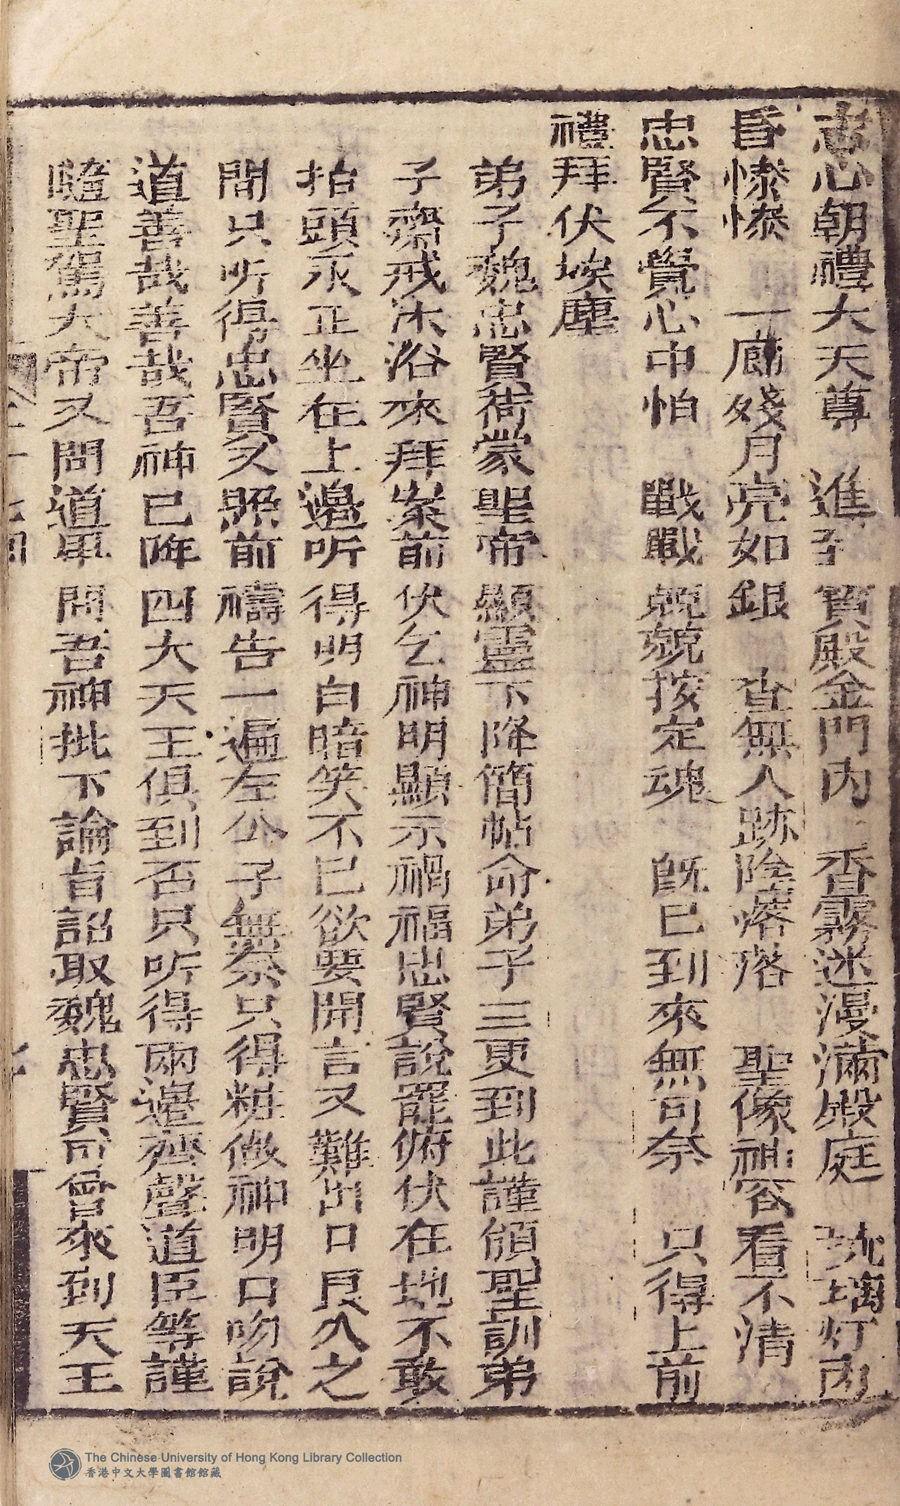 志心朝禮大天尊 進到寳殿金門內 香霧迷漫滿殿庭 玻璃灯內
昏慘慘 一廊殘月亮如銀 查無人跡陰落落 聖像神容看不清
忠賢不覺心中怕 戰戰兢兢按定魂 既已到來無可奈 只得上前
禮拜伏埃塵
弟子魏忠賢蒙聖帝顯靈下降簡帖命弟子三更到此謹頒聖訓弟
子齋戒沐浴來拜案前伏乞神明顯示禍福忠賢說罷俯伏在地不敢
抬頭永正坐在上邊听得明白暗笑不已欲要開言又難出口良久之
間只听得忠賢又照前禱告一遍左公子無奈只得粧做神明口吻說
道善哉善哉吾神已降四大天王俱到否只听得兩邉齊聲道臣等謹
隨聖駕大帝又問道早間吾神批下諭旨詔取魏忠賢可曾來到天王
The Chinese University of Hong Kong Library Collection
香港中文大學圖書館館藏